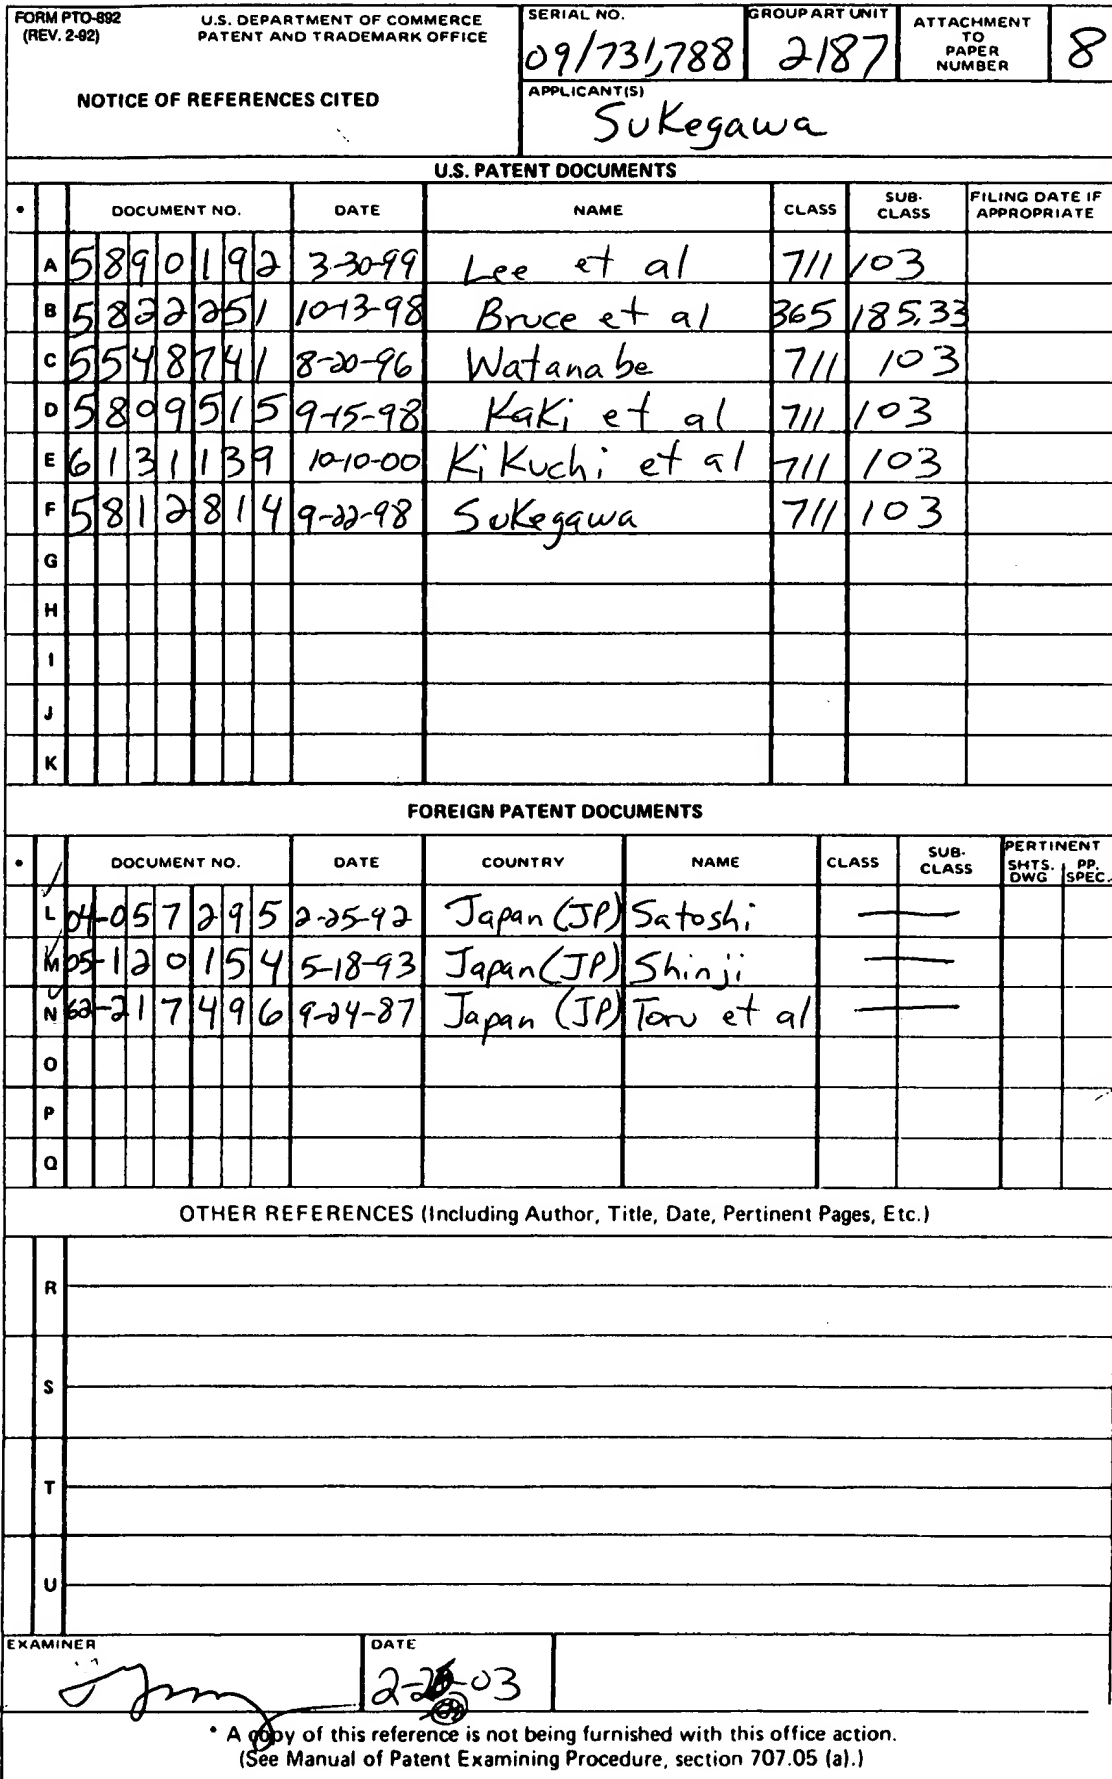 FORM PTO-892 U.S. DEPARTMENT OF COMMERCE
(REV. 2-92) PATENT AND TRADEMARK OFFICE
NOTICE OF REFERENCES CITED
SERIAL NO. GROUP ART UNIT ATTACHMENT TO PAPER NUMBER
09/731,788 2187 8
APPLICANT(S)
Sukegawa
U.S. PATENT DOCUMENTS
* DOCUMENT NO. DATE NAME CLASS SUB-CLASS FILING DATE IF APPROPRIATE
A 5890192 3-30-99 Lee et al 711 103
B 5822251 10-13-98 Bruce et al 365 185.33
C 5548741 8-20-96 Watanabe 711 103
D 5809515 9-15-98 Kaki et al 711 103
E 6131139 10-10-00 Kikuchi et al 711 103
F 5812814 9-22-98 Sukegawa 711 103
G
H
I
J
K
FOREIGN PATENT DOCUMENTS
* DOCUMENT NO. DATE COUNTRY NAME CLASS SUB-CLASS PERTINENT SHTS. DWG PP. SPEC.
L 04-057295 2-25-92 Japan (JP) Satoshi —
M 05-120154 5-18-93 Japan (JP) Shinji —
N 62-217496 9-24-87 Japan (JP) Toru et al —
O
P
Q
OTHER REFERENCES (Including Author, Title, Date, Pertinent Pages, Etc.)
R
S
T
U
EXAMINER DATE
2- -03
* A copy of this reference is not being furnished with this office action.
(See Manual of Patent Examining Procedure, section 707.05 (a).)